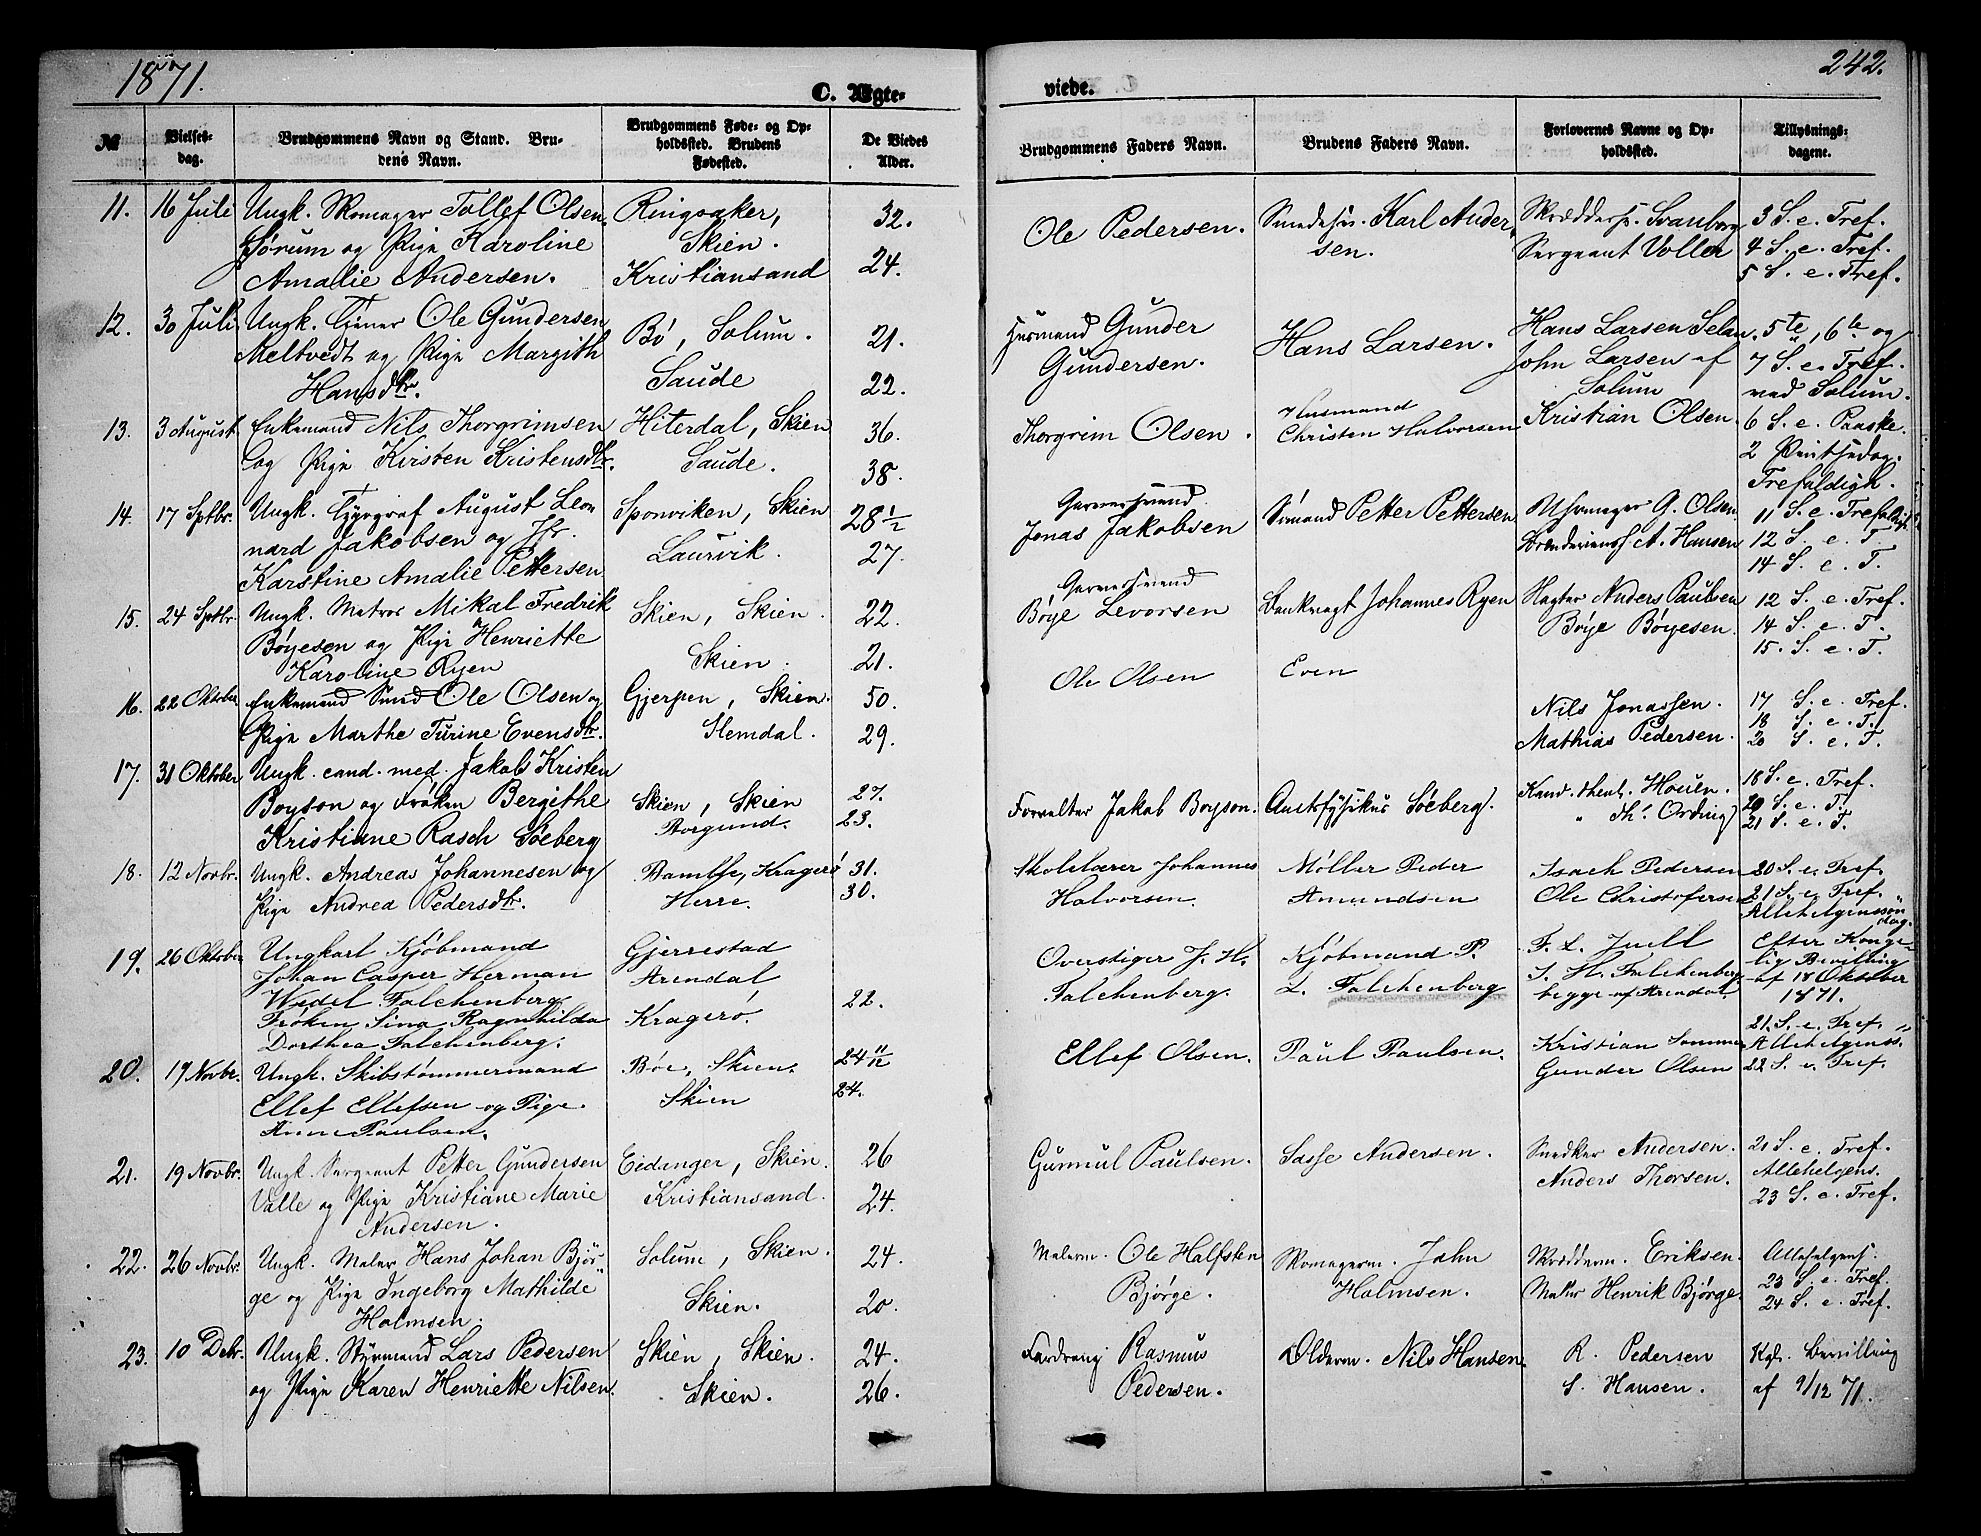 1871.
242.
C. Ægte-
viede.
№
Vielses-
dag.
Brudgommens Navn og Stand. Bru-
dens Navn.
Brudgommens Føde- og Op-
holdssted. Brudens
Fødested.
De Viedes
Alder.
Brudgommens Faders Navn.
Brudens Faders Navn.
Forlovernes Navne og Op-
holdssted.
Tillysnings-
dagene.
11. 16 Juli Ungk. Skomager Tollef Olsen Ringsaker, 32. Ole Pedersen. Smedesv. Karl Ander- Skræddersv. Svanberg 3 S. e. Tref.
Sørum og Pige Karoline Skien. sen. Sergeant Vollen 4 S. e. Tref.
Amalie Andersen. Kristiansand 24. 5 S. e. Tref.
12. 30 Juli Ungk. Tjener Ole Gundersen Bø, Solum. 21. Husmand Gunder Hans Larsen. Hans Larsen 5te, 6te og
Meltvedt og Pige Margith Saude 22. Gundersen. John Larsen af 7 S. e. Tref.
Hansdtr. Solum ved Solum.
13. 3 August Enkemand Nils Thorgrimsen Hiterdal, Skien 36. Thorgrim Olsen. Husmand Kristian Olsen. 6 S. e. Paaske.
og Pige Kirsten Kristensdtr. Saude. 38. Christen Halvorsen 2 Pintsedag.
Trefoldigh.
14. 17 Sptbr. Ungk. August Leon Sponviken, Skien 28½ Garversvend Sømand Petter Pettersen G. Olsen. 11 S. e. Trefoldigh.
nard Jakobsen og Jfr. Laurvik. 27. Jonas Jakobsen A. Hansen 12 S. e. T.
Karstine Amalie Pettersen 14 S. e. T.
15. 24 Sptbr. Ungk. Matros Mikal Fredrik Skien, Skien. 22. Garversvend Bankvagt Johannes Ryen Anders Paulsen 12 S. e. Tref.
Bøyesen og Pige Henriette Skien. 21. Bøye Levorsen Bøye Bøyesen. 14 S. e. T.
Karoline Ryen 15. S. e. T.
16. 22 Oktober Enkemand Ole Olsen og Gjerpen, Skien. 50. Ole Olsen Even Nils Jonassen. 17 S. e. Tref.
Pige Marthe Turine Evensdtr. Slemdal. 29. Mathias Pedersen. 18 S. e. T.
20 S. e. T.
17. 31 Oktober Ungk. cand. med. Jakob Kristen Skien, Skien 27. Forvalter Jakob Boyson. Amtsfysikus Søeberg. Kand. theol. Houen. 18 S. e. Tref.
Boyson og Frøken Bergithe Borgund. 23. " Th. Ording 20 S. e. T.
Kristiane Rasch Søeberg 21 S. e. T.
18. 12 Novbr. Ungk. Andreas Johannesen og Bamble, Kragerø 31. Skolelærer Johannes Møller Peder Isach Pedersen 20 S. e. Tref.
Pige Andrea Pedersdtr. Herre. 30. Halvorsen. Amundsen Ole Christofersen 21 S. e. Tref.
Allehelgenssøn
dag.
19. 26 Oktober Ungkarl Kjöbmand Gjerrestad Overstiger J. H. Kjöbmand P. F. L. Juell Efter Konge-
Johan Casper Herman Arendal Falchenberg. L. Falchenberg S. H. Falchenberg lig Bevilling
Wedel Falchenberg. 22. begge af Arendal. af 18 Oktober
Frøken Sina Ragnhilda Kragerø. 1871.
Dorthea Falchenberg.
20. 19 Novbr. Ungk. Skibstømmermand Bøe, Skien. 24 11/12 Ellef Olsen. Paul Paulsen. Kristian Sommer 21. S. e. Tref.
Ellef Ellefsen og Pige Skien 24. Gunder Olsen Allehelgenss.
Anne Paulsen. 22 S. e. Tref.
21. 19 Novbr. Ungk. Sergeant Petter Gundersen Eidanger, Skien. 26 Gunnul Paulsen. Sasse Andersen. Snedker Andersen. 21 S. e. Tref.
Valle og Pige Kristiane Marie Kristiansand. 24. Anders Thorsen. Allehelgens.
Andersen. 23 S. e. Tref.
22. 26 Novbr. Ungk. Maler Hans Johan Bjør- Solum, Skien. 24. Malerm. Ole Halfsten Skomagerm. John Skrædderm. Eriksen. Allehelgens.
ge og Pige Ingeborg Mathilde Skien. 20. Bjørge. Holmsen. Maler Henrik Bjørge. 23 S. e. Tref.
Holmsen. 24 S. e. Tref.
23. 10 Debr. Ungk. Styrmand Lars Pedersen Skien, Skien. 24. Rasmus Olderm. Nils Hansen. R. Pedersen Kgl. Bevilling
og Pige Karen Henriette Nilsen. Skien. 26. Pedersen. S. Hansen. af 9/12 71.